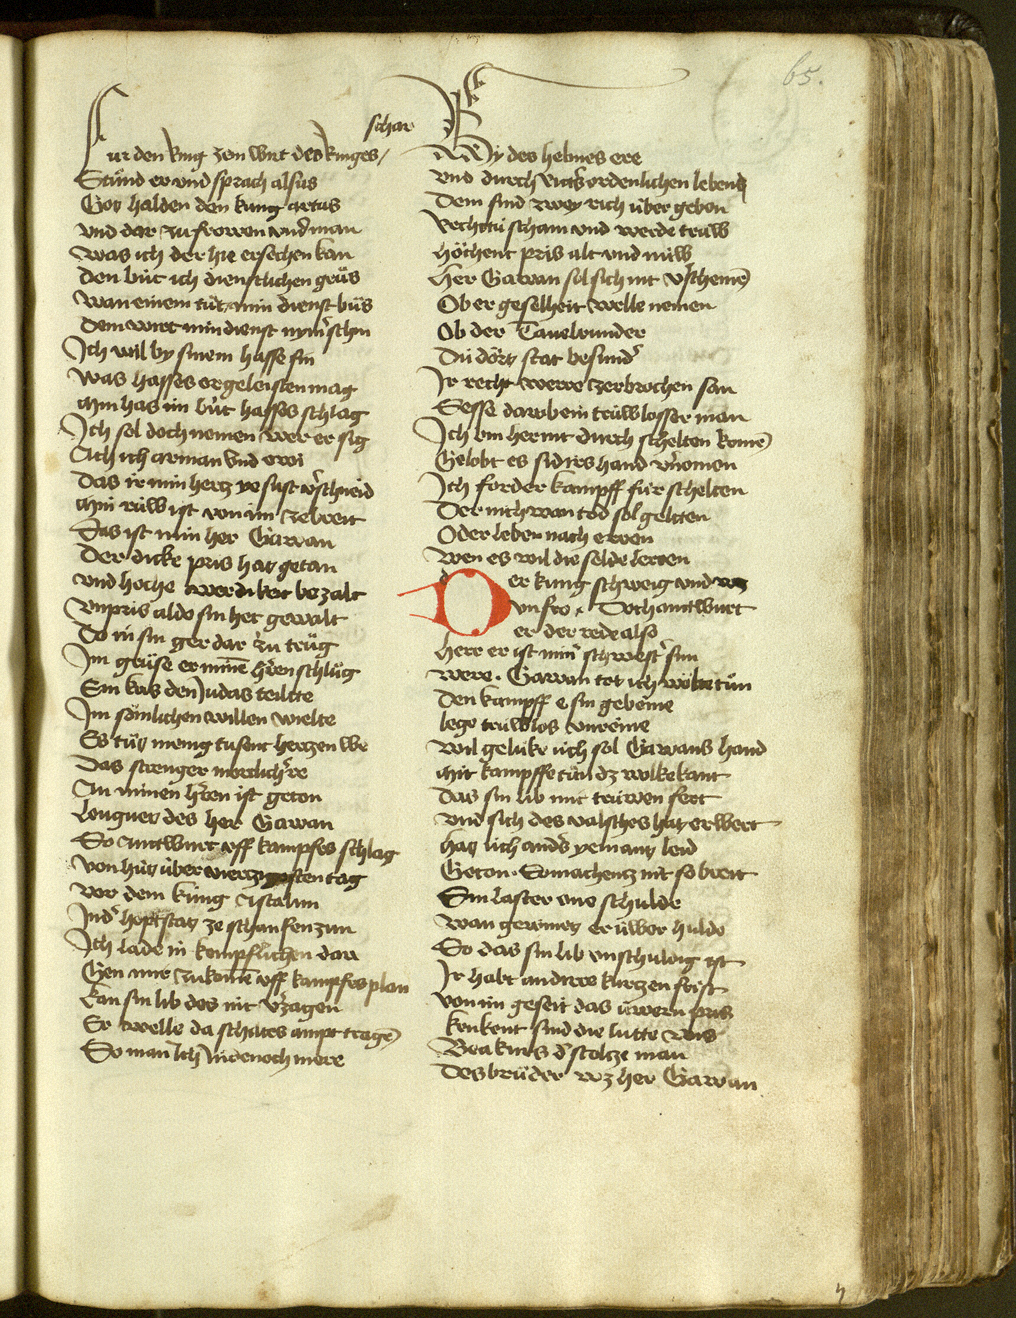 65.
schar
Fur den kung zem wirt des kinges /
Stuͦnd er vnd sprach alsus
Got halden den kung artus
vnd dar zu frowen vnd man
Was ich der hie ersechen kan
den buͤt ich dienstlichen gruͦs
wan einem tuͦt min dienst buͦs
dem wirt min dienst nymer schin
Ich wil by sinem hasse sin
was hasses er geleisten mag
min has im buͤt hasses schlag
Ich sol doch nemen wer er sig
Ach ich arman vnd owi
Das ir min hertz ye sust verschneid
min ruͤw ist von im ze breit
Das ist min her Gawan
Der dicke pris hat getan
vnd hoche werdikeit bezalt
vnpris aldo sin het gewalt
Do in sin ger dar zuͦ truͦg
Im gruͦse er minen herren schluͦg
Ein kus den Judas teilte
Im soͤnlichen willen vielte
Es tuͦt menig tusent hertzen we
Das strenger mortlich re
An minen herren ist geton
Lougnet des her Gawan
So antwurt vff kampfes schlag
von huͤt uͤber viertzigosten tag
vor dem kuͤng Astalun
In der hoptstat ze schanfenzun
Ich lade in kempflichen dar
Gen mir zu komen vff kampfes plan
kan sin lib des nit verzagen
Er welle da schiltes ampt tragen
So man ich in denoch mere
By des helmes ere
vnd durch ritters ordenlichen leben
Dem sind zwey rich uͤber geben
Rechtuͤ scham vnd werde truͤw
hoͤchent pris alt vnd nuͤw
her Gawan sol sich nit verschemen
Ob er geselheit welle nemen
Ob der Tauelrunder
Duͤ doͤrt stat besunder
Ir recht werre zerbrochen san
Sesse darob ein truͤwlosser man
Ich bin her nit durch schelten komen
Gelobt es sid irs hand vernomen
Ich forder kampff fuͤr schelten
Der nich wan tod sol gelten
Oder leben nach eren
Wen es wil die selde leren
Der kung schweig vnd was
vnfro . Doch antwurt
er der rede also
herr er ist miner schwester sun
were . Gawan tot ich woͤlte tuͦn
Den kampff e sin gebeine
lege truͤwlos vnreine
wil geluͤke uͤch sol Gawans hand
mit kampffe tuͦn dz wol bekant
Das sin lib mit truͤwen fert
vnd sich des valsches hat erwert
hat uch anders yemant leid
Geton . So machent nit so breit
Sin laster one schulde
wan gewinet er uͤwer hulde
So das sin lib vnschuldig ist
Ir habt an dirre kurtzen frist
von im geseit das uͤwern pris
krenkent sind die lutte wis
Beakurs der stoltze man
Des bruͦder wz her Gawan